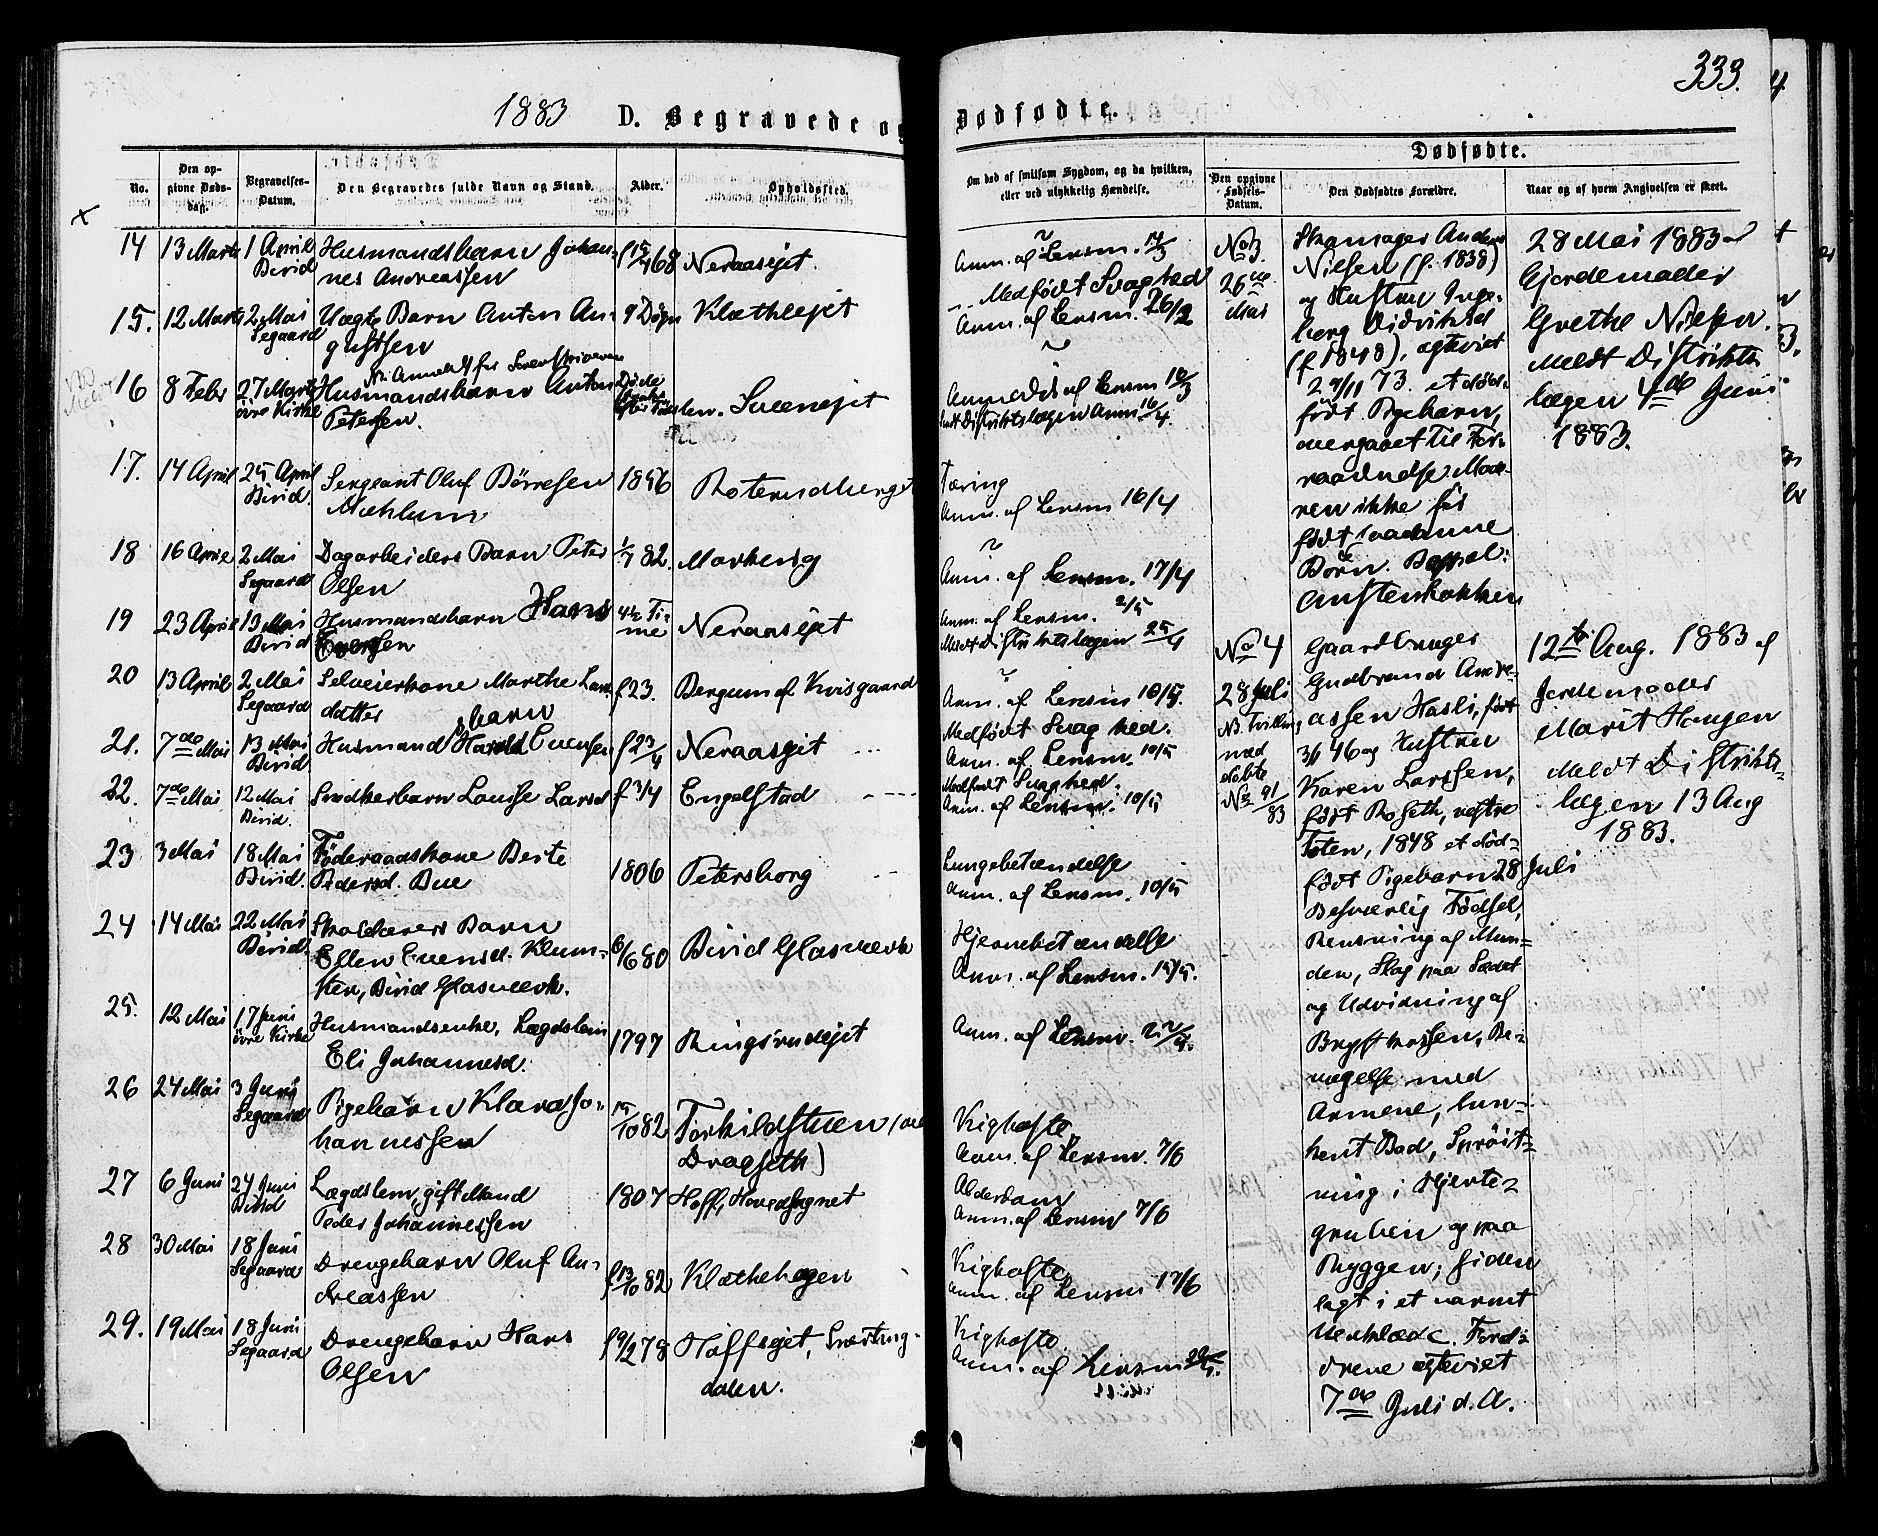 1883 D. Begravede og Dødfødte. 333.
Dødfødte.
No.
Den opgivne Dødsdag.
Begravelses-Datum.
Den Begravedes fulde Navn og Stand.
Alder.
Opholdssted.
Om død af smitsom Sygdom, og da hvilken, eller ved ulykkelig Hændelse.
Den opgivne Fødsels-Datum.
Den Dødfødtes Forældre.
Naar og af hvem Angivelsen er skeet.
14 13 Marts 1 April Birid Husmandsbarn Johan-
nes Andreassen
Neraasejet.
Anm. af Lensm.
15. 12 Marts 2 Mai Segaard Uægte Barn Anton Au-
gustsen
9 Døgn Klætheejet
Medfødt Svaghed
Anm. af Lensm. 26/2
16 8 Febr 27 Marts övre Kirke Husmandsbarn Anton
Petersen.
Sveenejet
Anmeldt af Lensm
17. 14 April 25 April Birid. Sergeant Oluf Börresen
Mæhlum
1856
Tæring
Anm. af Lensm 16/4
18 16 April 2 Mai Segaard Dagarbeiders Barn Peter
Olsen
82. Markeng
Anm. af Lensm. 17/4
19 23 April 13 Mai Birid Husmandsbarn Hans
Evensen
4½ Ti-
me Neraasejet
Anm. af Lensm. 2/5
Meldt Distriktslægen 25/4
20 13 April 2 Mai Segaard Selveierkone Marthe Lars-
datter
f 23. Bergum af Kvisgaard
Anm. af Lensm 10/5
21. 7de Mai 13 Mai Birid Husmandsbarn Harald Evensen f 23/4 Neraasejet
Medfødt Svaghed.
Anm. af Lensm. 10/5
22. 7de Mai 12 Mai Birid. Snedkerbarn Louise Larsd f 3/4 Engelstad
Medfødt Svaghed.
Anm. af Lensm. 10/5
23 3 Mai 18 Mai Birid. Föderaadskone Berte
Pedersd. Bue
1806 Petersborg
Lungebetændelse
Anm. af Lensm. 10/5
24 14 Mai 22 Mai Birid. Skolelærers Barn
Ellen Evensd. Klum-
ken, Birid Glasværk.
6/6 80 Birid Glasværk
Hjernebetændelse
Anm. af Lensm. 15/5.
25. 12 Mai 17 Juni övre Kirke Husmandsenke, Lægdslem
Eli Johannesd.
1797 Ringsrudejet
Anm. af Lensm.
26 24 Mai 3 Juni Segaard Pigebarn Klara Jo-
hannessen
15/10 82 Torkildstuen
Dragseth)
Kighoste
Anm. af Lensm. 7/6
27 6 Juni 24 Juni Birid Lægdslem, gift Mand
Peder Johannessen
1807 Hoff, Hovedsognet
Alderdom
Anm. af Lensm 7/6
28 30 Mai 18 Juni Segaard Drengebarn Oluf An-
dreassen
f 13/10 82 Klæthehagen
Kighoste
Anm. af Lensm 17/6
29. 19 Mai 18 Juni Segaard Drengebarn Hans
Olsen
f 9/2 78 Hoffsejet, Snerting-
dalen.
Kighoste
Anm. af Lensm
No 3.
26de
Mai
Skomager Anders
Nilsen (f. 1838)
og Hustru Inge-
borg Didriksd
(f 1848), egteviet
73. et død-
født Pigebarn,
overgaaet til For-
raadnelse. Mode-
ren ikke før
født saadanne
Børn. Bopæl:
Austenbakken
28 Mai 1883 af
Gjordemoder
Grethe Nilsen.
Meldt Distrikts-
lægen 4de Juni
1883.
No 4
28 Juli
N. Tvilling
med
döbte
No 91/83
Gaardbruger
Gudbrand Andre-
assen Hasli, født
3/6 46 og Hustru
Karen Larssen,
født Roseth, vestre
Toten, 1848 et død-
født Pigebarn 28 Juli
Besværlig Fødsel,
Rensning af Mun-
den, Slag paa Sædet
og Udvidning af
Brystkassen, Be-
vægelse med
Armene, lun-
kent Bad, Sprøit-
ning i Hjerte-
gruben og paa
Ryggen; siden
lagt i et varmt
Uldklæde. Foræl-
drene egteviet
7de Juli d. A.
12te Aug. 1883 af
Jordemoder
Marit Haugen
Meldt Distrikts-
lægen 13 Aug
1883.